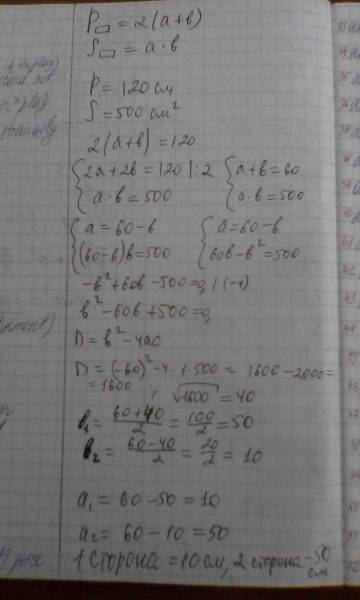 P▭ = 2(a+b)
S▭ = a·b
P = 120 см
S = 500 см²
2(a+b) = 120
{2a+2b = 120 |:2 {a+b = 60
a·b = 500 a·b = 500
{a = 60-b {a = 60-b
(60-b)b = 500 60b-b² = 500
-b²+60b-500 = 0, |·(-1)
b²-60b+500 = 0,
D = b²-4ac
D = (-60)²-4·1·500 = 3600-2000 =
= 1600 ; √1600 = 40
b₁ = 60+40/2 = 100/2 = 50
b₂ = 60-40/2 = 20/2 = 10
a₁ = 60-50 = 10
a₂ = 60-10 = 50
1 сторона = 10 см, 2 сторона - 50
см